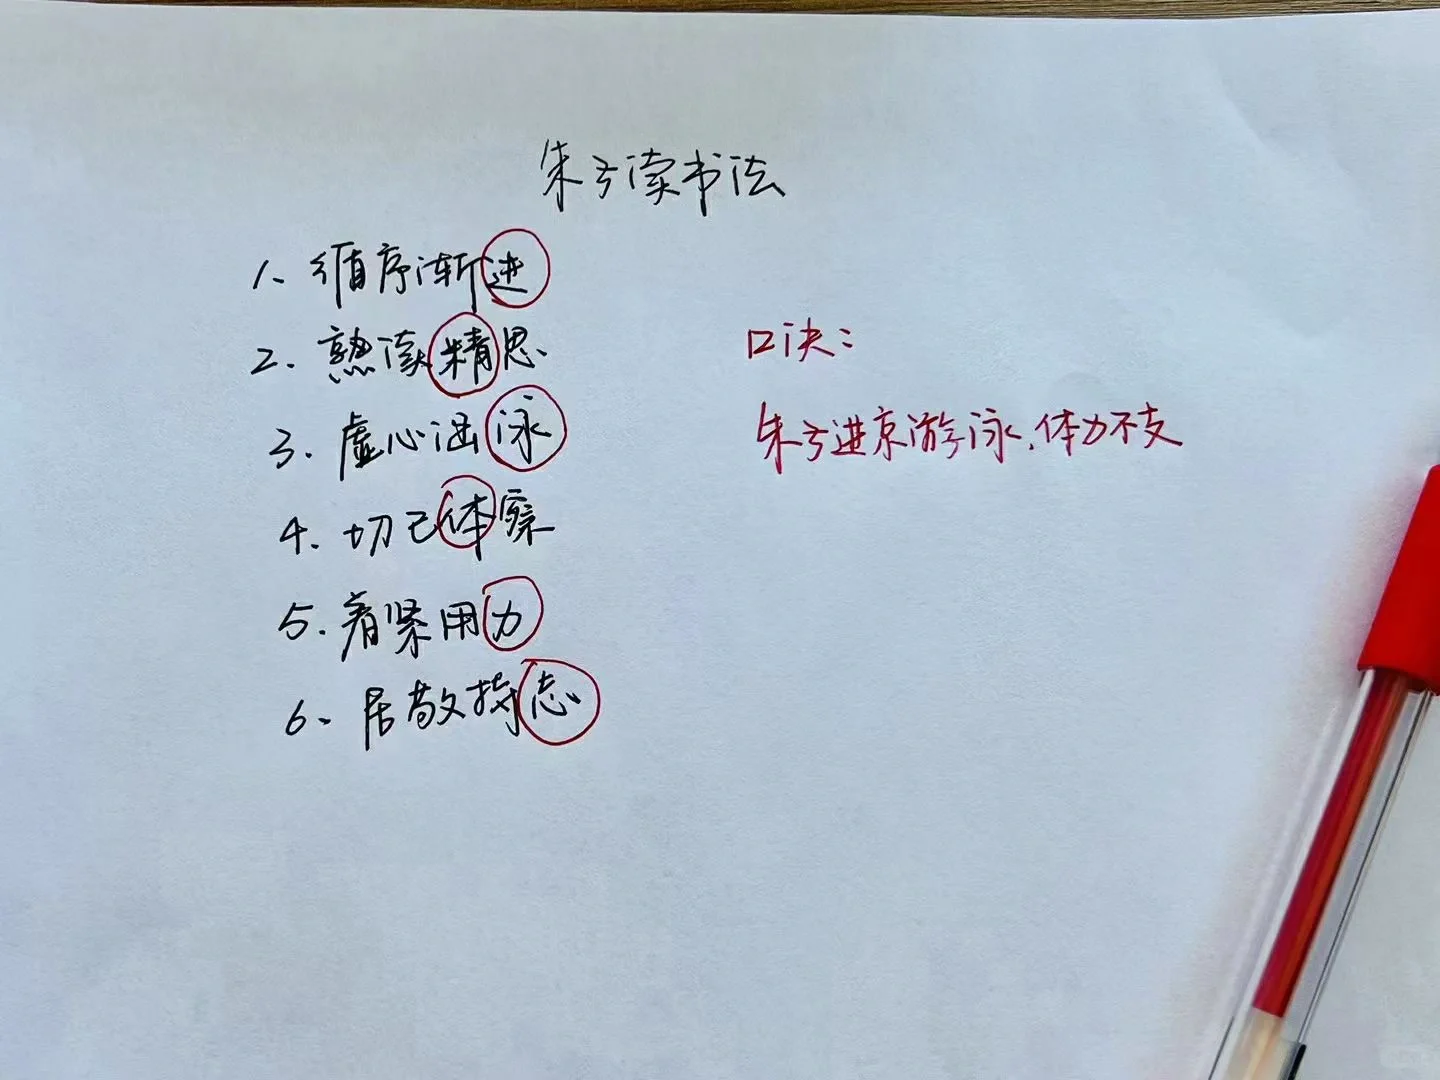 朱子读书法
1、循序渐进
2、熟读精思
3、虚心涵泳
4、切己体察
5、着紧用力
6、居敬持志
口诀：
朱子进京游泳，体力不支